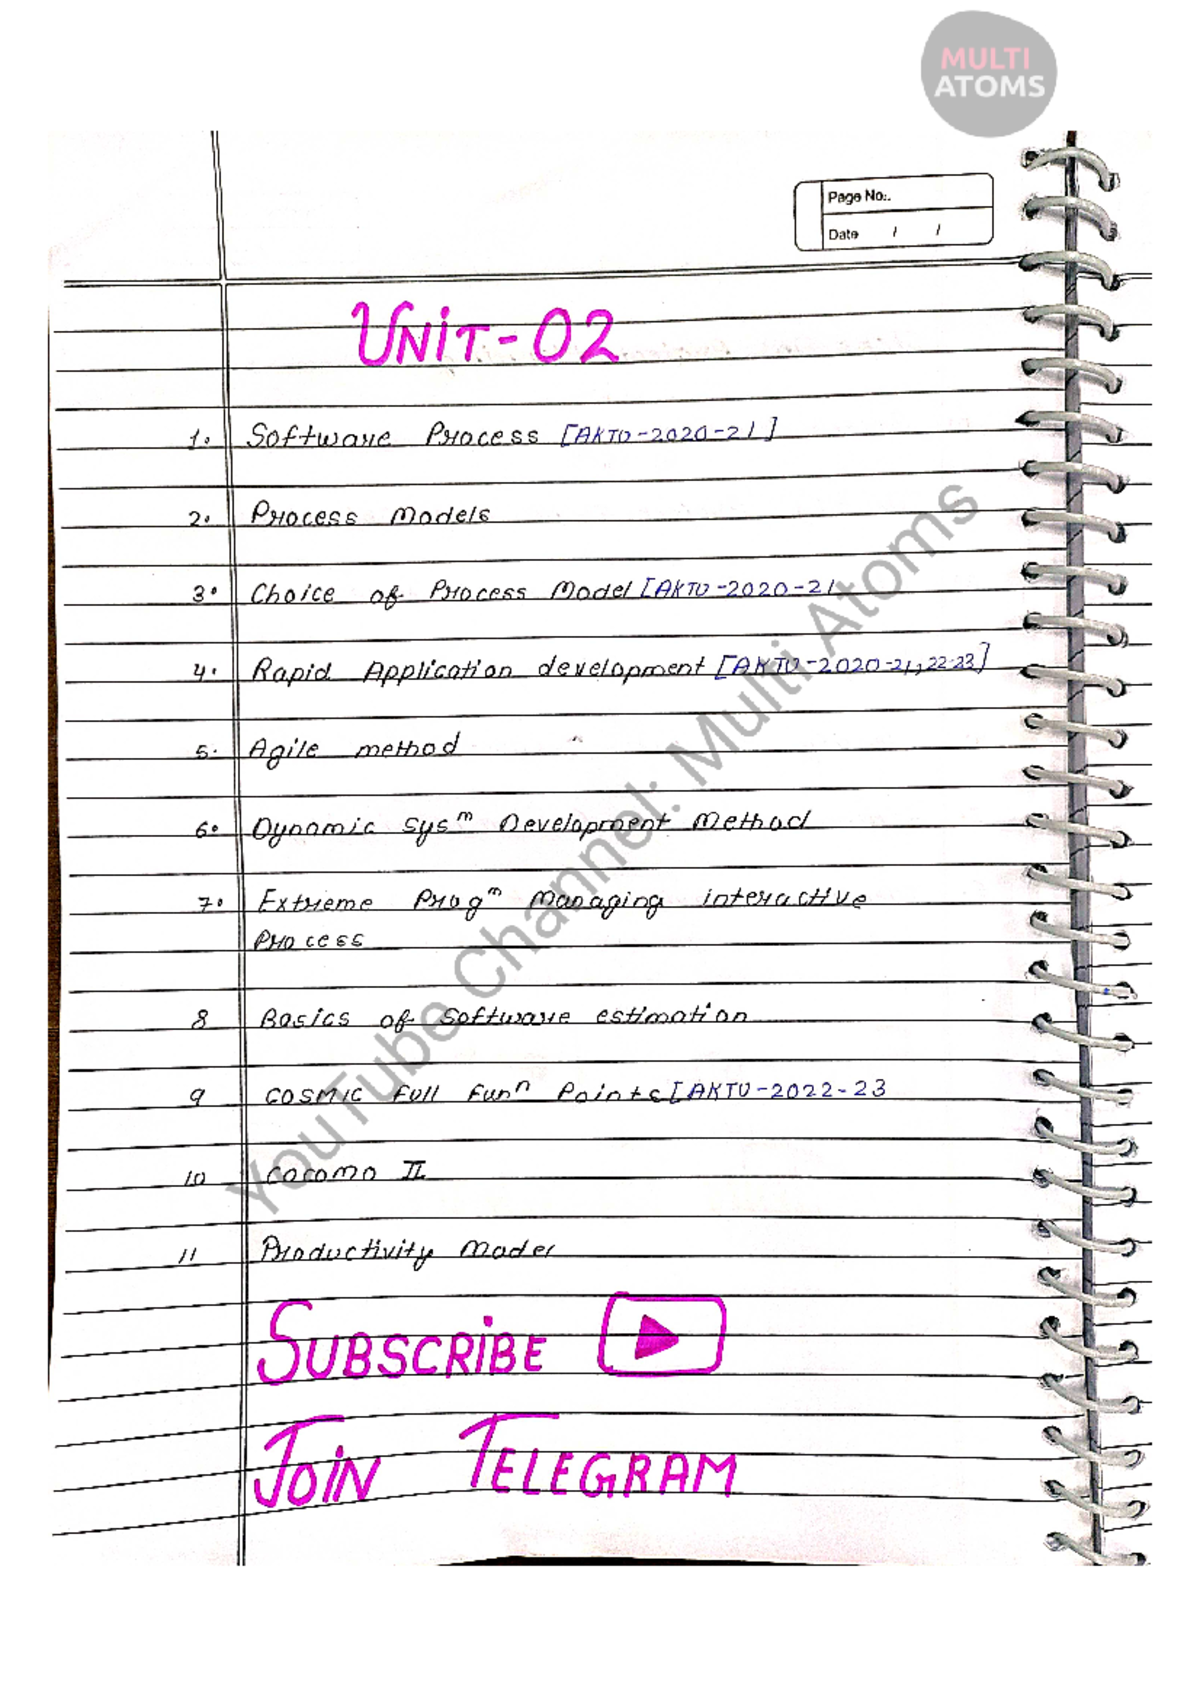 MULTI
ATOMS
Page No:.
Date / /
UNIT-02
1. Software Process [AKTU-2020-21]
2. Process Models
3. Choice of Process Model [AKTU-2020-21
4. Rapid Application development [AKTU-2020-21,,22-23]
5. Agile method
6. Dynamic sysᵐ Development Method
7. Extreme Progᵐ Managing interactive
Process
8 Basics of Software estimation
9 COSMIC Full Funⁿ Points [AKTU-2022-23
10 Cocomo II
11 Productivity Model
SUBSCRIBE
JOIN TELEGRAM
YouTube Channel: Multi Atoms